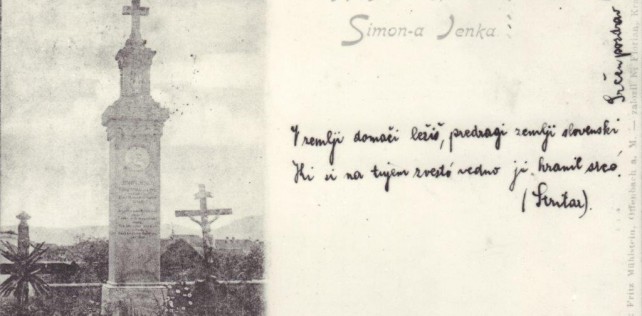 Simon-a Jenka
V zemlji domači ležiš, predragi zemlji slovenski
Ki si na tujem zvestó vedno ji hranil srcé!
(Stritar).
Srčen pozdrav
Fritz Mühlstein, Offenbach a. M. — založil